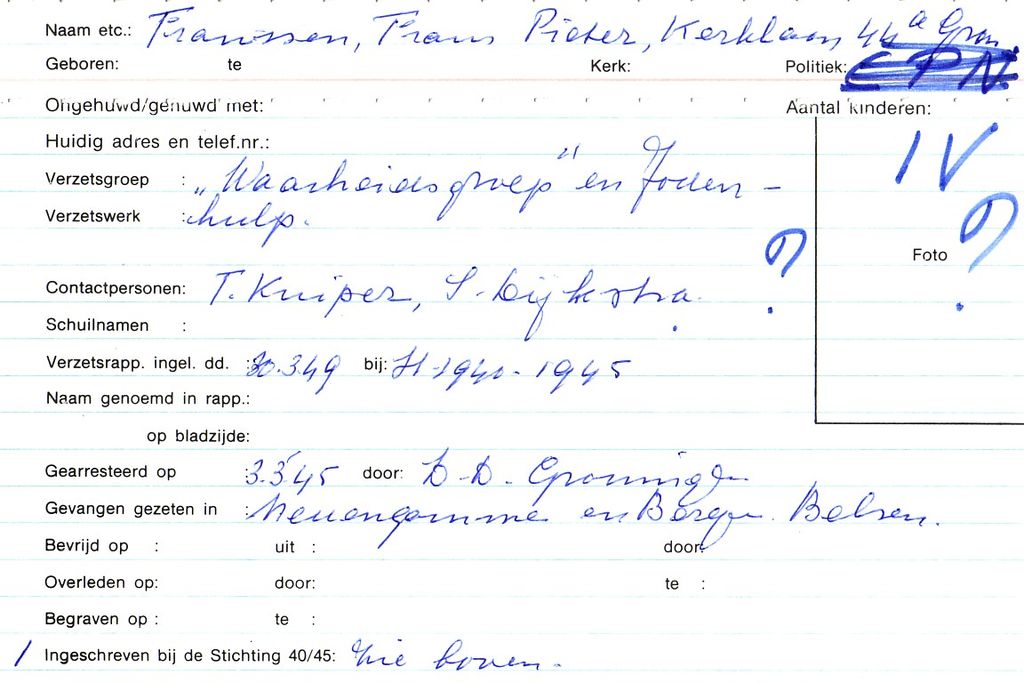 Naam etc.: Franssen, Frans Pieter, Kerklaan 44a Gron.
Geboren: te Kerk: Politiek: CPN
Ongehuwd/gehuwd met: Aantal kinderen:
Huidig adres en telef.nr.: IV
Verzetsgroep : „Waarheidsgroep" en Joden-
Verzetswerk : hulp.
? Foto ?
Contactpersonen: T. Kuiper, S. Dijkstra.
Schuilnamen :
Verzetsrapp. ingel. dd. : 30.3.49 bij: St 1940-1945
Naam genoemd in rapp.:
op bladzijde:
Gearresteerd op : 3.3.'45 door: S.D. Groningen
Gevangen gezeten in : Neuengamme en Bergen Belsen.
Bevrijd op : uit : door:
Overleden op: door: te :
Begraven op : te :
/ Ingeschreven bij de Stichting 40/45: zie boven.